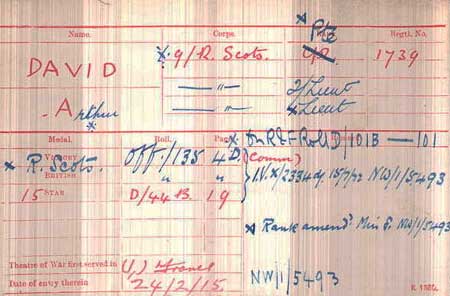 Name. Corps. Rank. Regtl. No.
DAVID x 9/R. Scots. x Pte 1739
— " — 2/Lieut
. Arthur — " — Lieut
x
Medal. Roll. Page x On R&F Roll D/101B — 101
VICTORY Off/135 4D. (Comm)
x R. Scots. BRITISH " "
15 STAR D/44B. 19 NW/1/5493
x Rank amend NW/1/5493
Theatre of War first served in (1) France
Date of entry therein 24/2/15. NW/1/5493